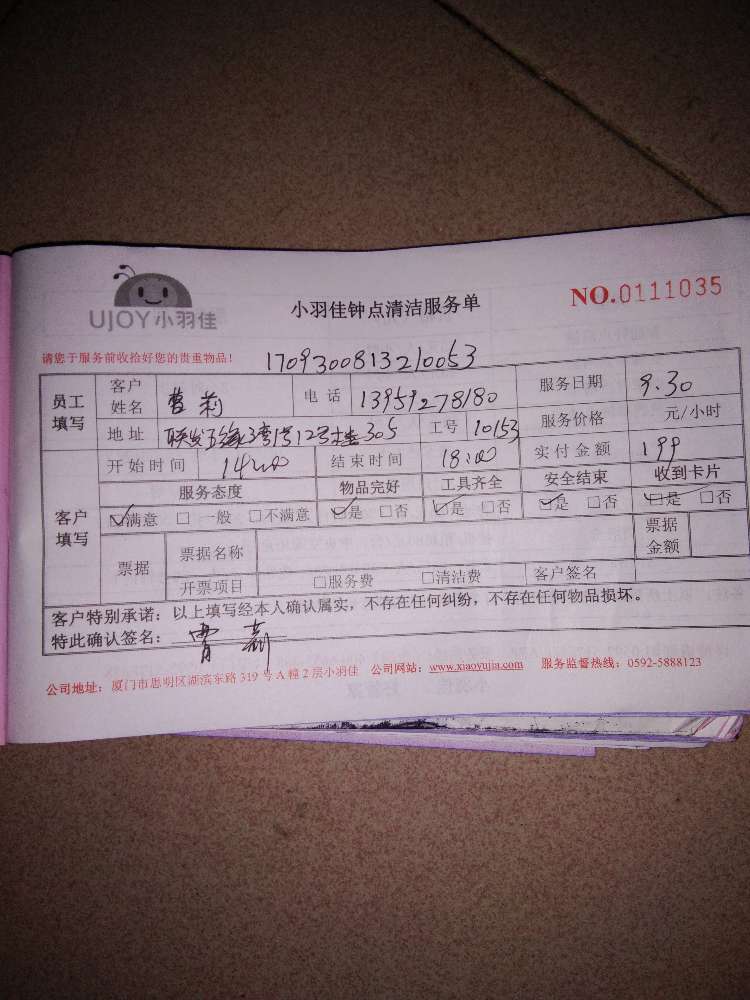 UJOY小羽佳
小羽佳钟点清洁服务单
NO.0111035
请您于服务前收拾好您的贵重物品！
1709300813210053
员工填写 客户姓名 曹莉 电话 13959278180 服务日期 9.30
地址 联发五缘湾1号12号楼305 工号 10153 服务价格 元/小时
客户填写 开始时间 14:00 结束时间 18:00 实付金额 199
服务态度 物品完好 工具齐全 安全结束 收到卡片
☑满意 □一般 □不满意 ☑是 □否 ☑是 □否 ☑是 □否 ☑是 □否
票据 票据名称 票据金额
开票项目 □服务费 □清洁费 客户签名
客户特别承诺：以上填写经本人确认属实，不存在任何纠纷，不存在任何物品损坏。
特此确认签名：
公司地址：厦门市思明区湖滨东路 319 号 A 幢 2 层小羽佳 公司网站：www.xiaoyujia.com 服务监督热线：0592-5888123